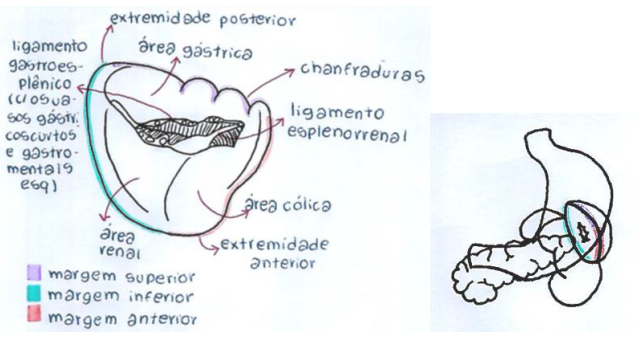 extremidade posterior
ligamento
gastroes-
plênico
(c/os va-
sos gástri
cos curtos
e gastro-
mentais
esq)
área gástrica
chanfraduras
ligamento
esplenorrenal
área cólica
área
renal
extremidade
anterior
margem superior
margem inferior
margem anterior